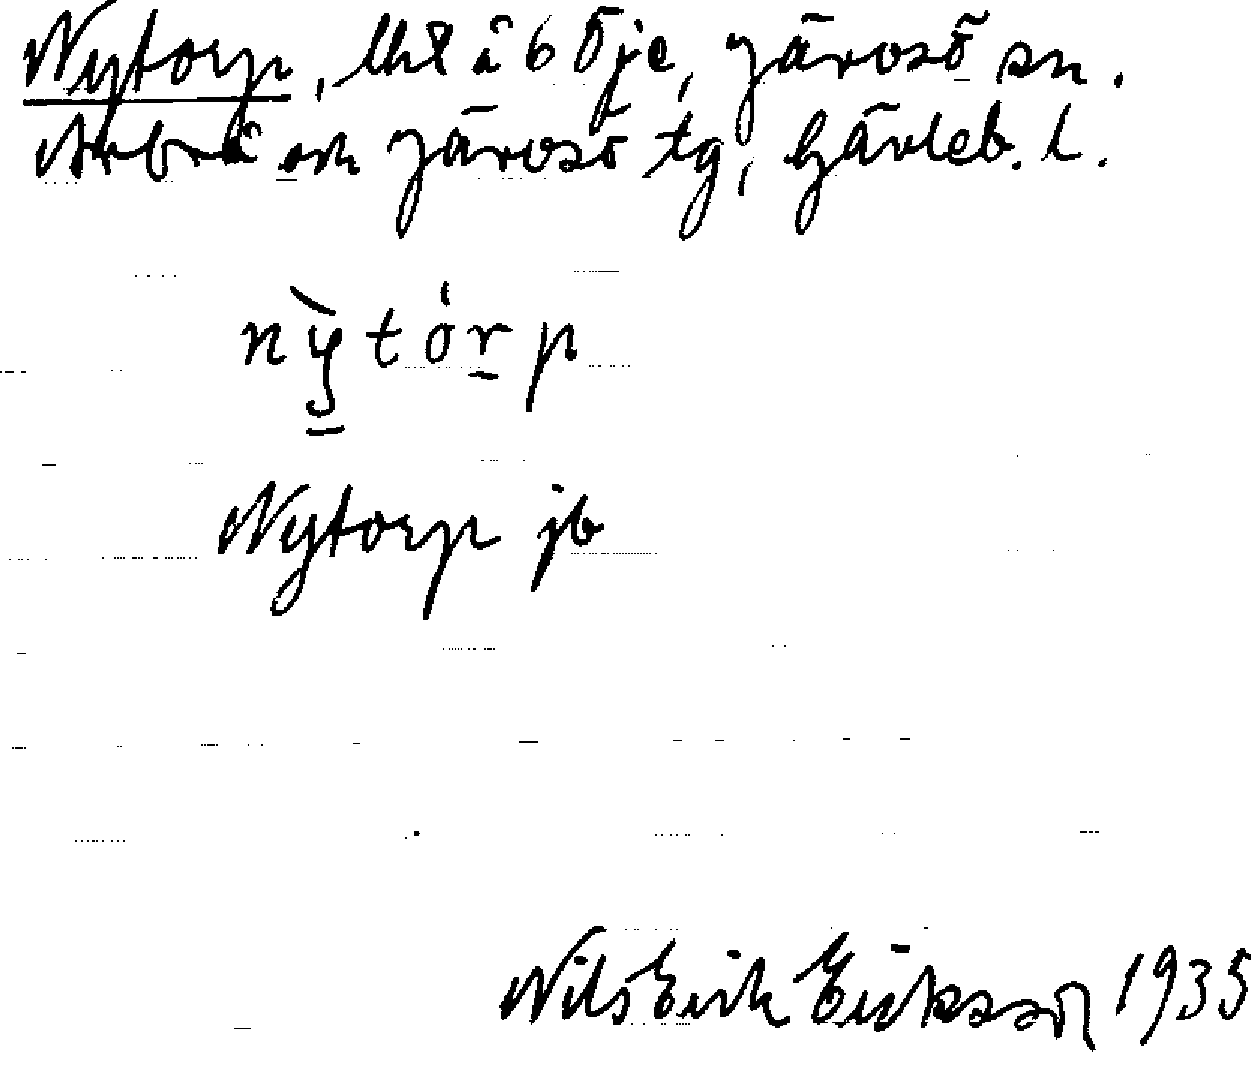 Nytorp, lht å 6 Öje, Järvsö sn.
Arbrå och Järvsö tg, Gävleb. l.
nỳtórp
Nytorp jb
Nils Erik Eriksson 1935